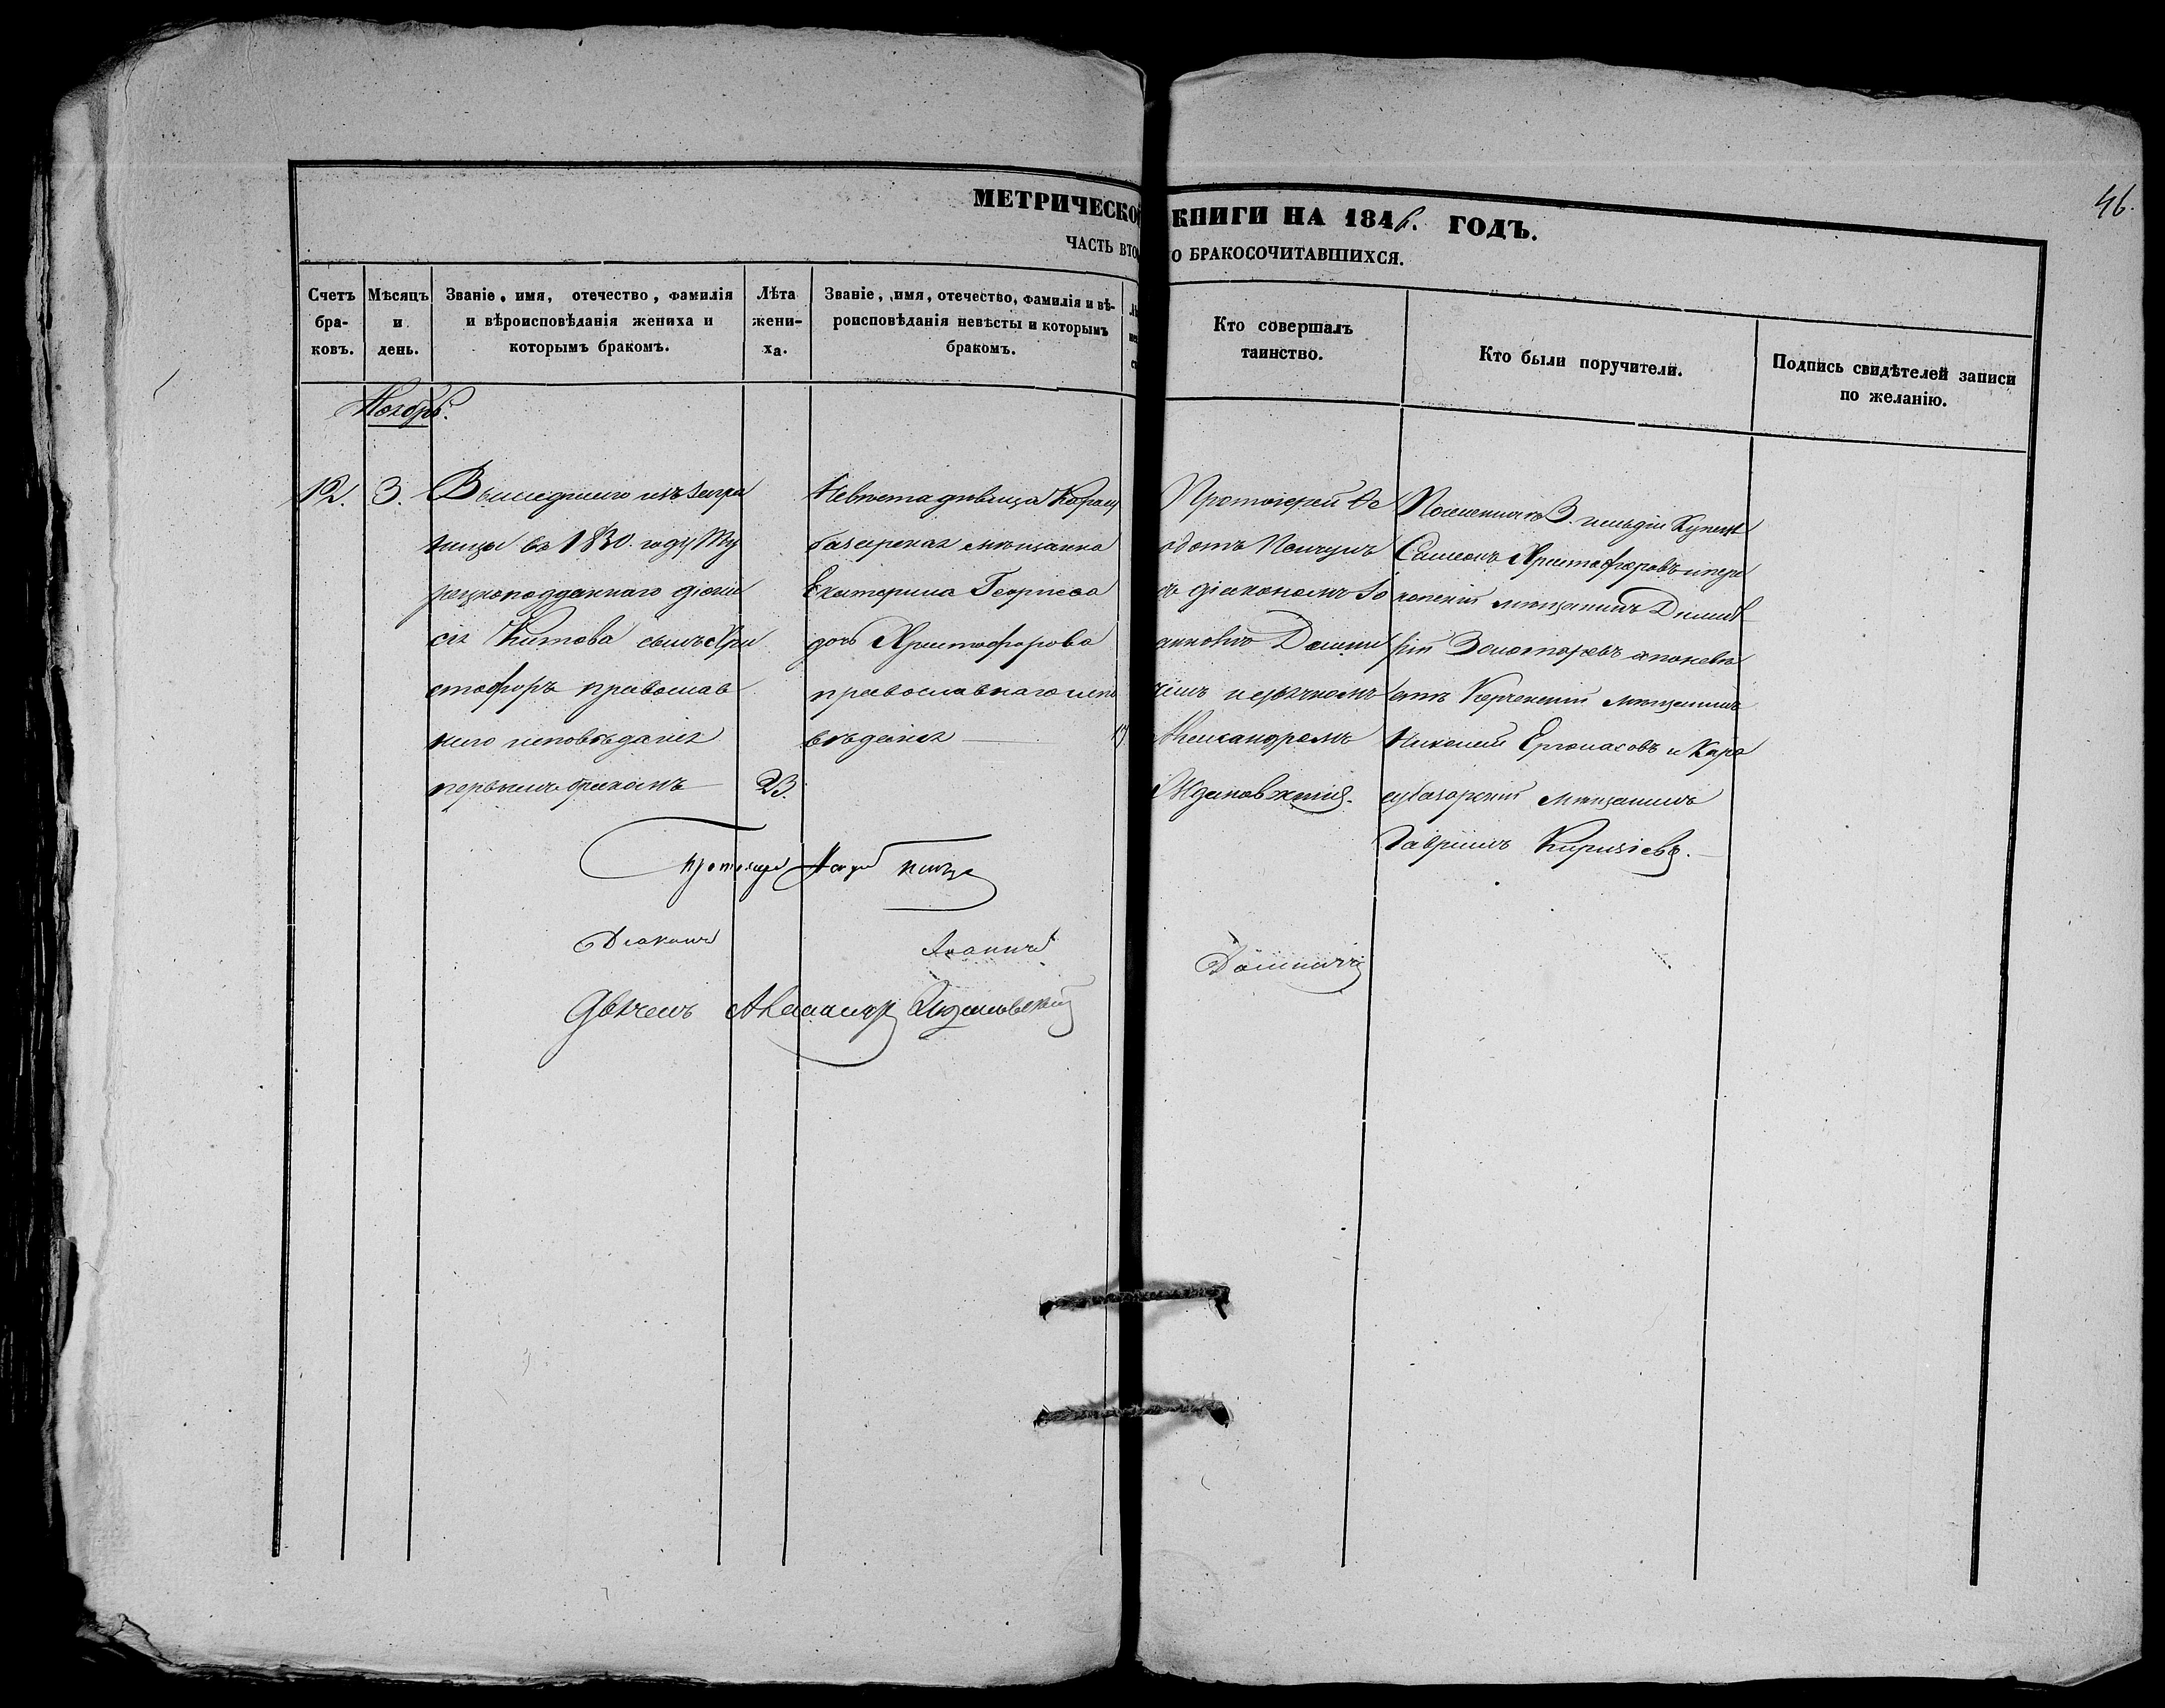 46.
МЕТРИЧЕСКО КНИГИ НА 1846. ГОДЪ.
ЧАСТЬ ВТО О БРАКОСОЧИТАВШИХСЯ.
Счетъ бра-ковъ.
Мѣсяцъ и день.
Званіе, имя, отечество, фамилія
и вѣроисповѣданія жениха и
которымъ бракомъ.
Лѣта жени-ха.
Званіе, имя, отечество, фамилія и вѣ-
роисповѣданія невѣсты и которымъ
бракомъ.
Кто совершалъ
таинство.
Кто были поручители.
Подпись свидѣтелей записи
по желанію.
Ноябрь.
12.
3.
Вышедшаго изъ загра
ницы въ 1830. году Ту
рецкоподданнаго Діони
сія Китова сынъ Хри
стофоръ православ
наго исповѣданія
первымъ бракомъ
23.
Невѣста дѣвица Карасу
базарская мѣщанка
Екатерина Георгиева
дочь Христофорова
православнаго испо
вѣданія
Протоіерей Ѳе
одотъ
съ діакономъ Іо
анномъ Дашки
чемъ и дьячкомъ
Александромъ
Ждановскимъ.
По женихѣ 3. гильдіи Купецъ
Симеонъ Христофоровъ и пере
копскій мѣщанинъ Димит
рій Золотаревъ а по невѣ
стѣ Керченскій мѣщанинъ
Николай и Кара
субазарскій мѣщанинъ
Гавріилъ
Протоіерей
Діаконъ Іоаннъ
Дьячекъ Александръ Ждановскій